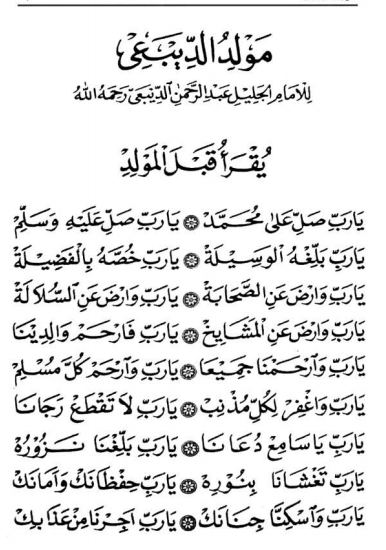 مَوْلِدُ الدِّيبَعِى
لِلْاِمَامِ الْجَلِيْلِ عَبْدِ الرَّحْمٰنِ الدِّيْبَعِى رَحِمَهُ اللهُ
يُقْرَأُ قَبْلَ الْمَوْلِدِ
يَارَبِّ صَلِّ عَلىٰ مُحَمَّدْ ۞ يَارَبِّ صَلِّ عَلَيْهِ وَسَلِّمْ
يَارَبِّ بَلِّغْهُ الْوَسِيْلَةْ ۞ يَارَبِّ خُصَّهُ بِالْفَضِيْلَةْ
يَارَبِّ وَارْضَ عَنِ الصَّحَابَةْ ۞ يَارَبِّ وَارْضَ عَنِ السُّلَالَةْ
يَارَبِّ وَارْضَ عَنِ الْمَشَايِخْ ۞ يَارَبِّ فَارْحَمْ وَالِدِيْنَا
يَارَبِّ وَارْحَمْنَا جَمِيْعًا ۞ يَارَبِّ وَارْحَمْ كُلَّ مُسْلِمْ
يَارَبِّ وَاغْفِرْ لِكُلِّ مُذْنِبْ ۞ يَارَبِّ لَا تَقْطَعْ رَجَانَا
يَارَبِّ يَا سَامِعْ دُعَانَا ۞ يَارَبِّ بَلِّغْنَا نَزُوْرُهْ
يَارَبِّ تَغْشَانَا بِنُوْرِهْ ۞ يَارَبِّ حِفْظَانَكْ وَاَمَانَكْ
يَارَبِّ وَاَسْكِنَّا جِنَانَكْ ۞ يَارَبِّ اَجِرْنَا مِنْ عَذَابِكْ